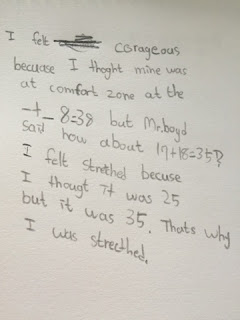 I felt corageous
becuase I thoght mine was
at comfort zone at the
-+_ 8=38 but Mr.boyd
said how about 17+18=35?
I felt strethed becuse
I thougt it was 25
but it was 35. Thats why
I was strecthed.